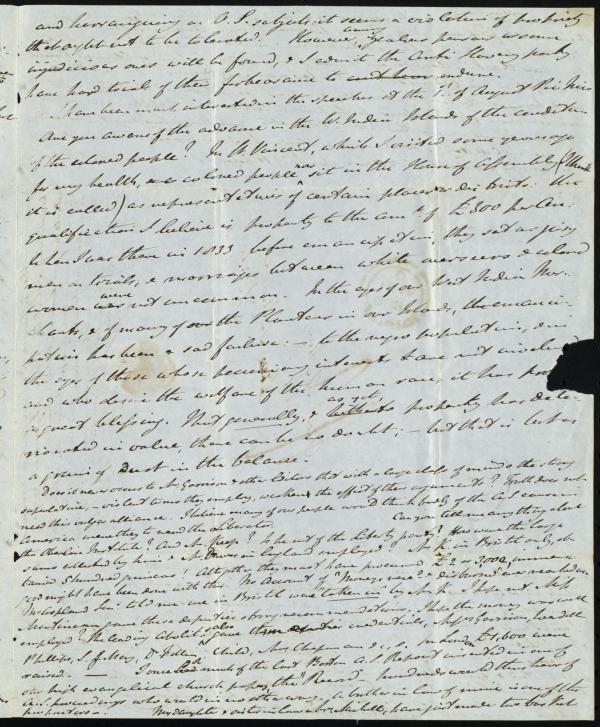 and haranguing on A. S. subjects: it seems a violation of propriety
that ought not to be tolerated. However, zealous persons as some
injudicious ones will be found, & I admit the Anti Slavery party
have hard trials of their forbearance to endure.
I have been much interested in the speeches at the 1st of August
Are you aware of the advance in the W. Indian Islands of the condition
of the colored people? In St. Vincent, which I visited some years ago
for my health, colored people now sit in the House of Assembly (I think
it is called) as representatives of certain places or districts: the
qualification I believe is property to the amt of £300 per An:
When I was there in 1833 before emancipation, they sat as jury
men on trials, & marriages between white overseers & colored
women were not uncommon. In the eyes of our West Indian Mer-
chants, & of many of our the Planters in our Islands, the emanci-
pation has been a sad failure: — to the negro population, & in
the eyes of those whose pecuniary interests are not involved
and who desire the welfare of the human race, it has proved
a great blessing. That generally, & as yet, property has dete-
riorated in value, there can be no doubt; — but that is but as
a grain of dust in the balance.
Does it never occur to Mr Garrison & other Editors that with a large class of minds the strong
– violent terms they employ, weaken the effect of their arguments? Truth does not
need this vulgar alliance. I believe many of our people would think better of the A. S. cause in
America were they to read the Liberator. Can you tell me any thing about
the Oberlin Institute? And Mr Keep? Is he not of the Liberty party? How were the large
sums collected by him & Mr Dawes in England employed? Mr K. in Bristol only ob-
tained 5 hundred guineas! Altogether they must have procured £2 or 3000, immense
good might have been done with this. No account of "Moneys rece'd & disbursed" ever reached us.
told me we in Bristol was "taken in" by Mr K. I hope not. Miss
Martineau gave these deputies strong recommendations. I hope the money was well
employed? The leading Abolits: also gave them credentials, Messrs Garrison, Wendell
Phillips, S. J. May, Dr Follen, Child, Mrs Chapman &c. In London £1,600 were
raised. — I once had much of the last Boston A. S. Report inserted in one of
our high evangelical church papers, the "Record" hundreds would thus hear of
A. S. proceedings who would in no other way,
My daughter & sister in law